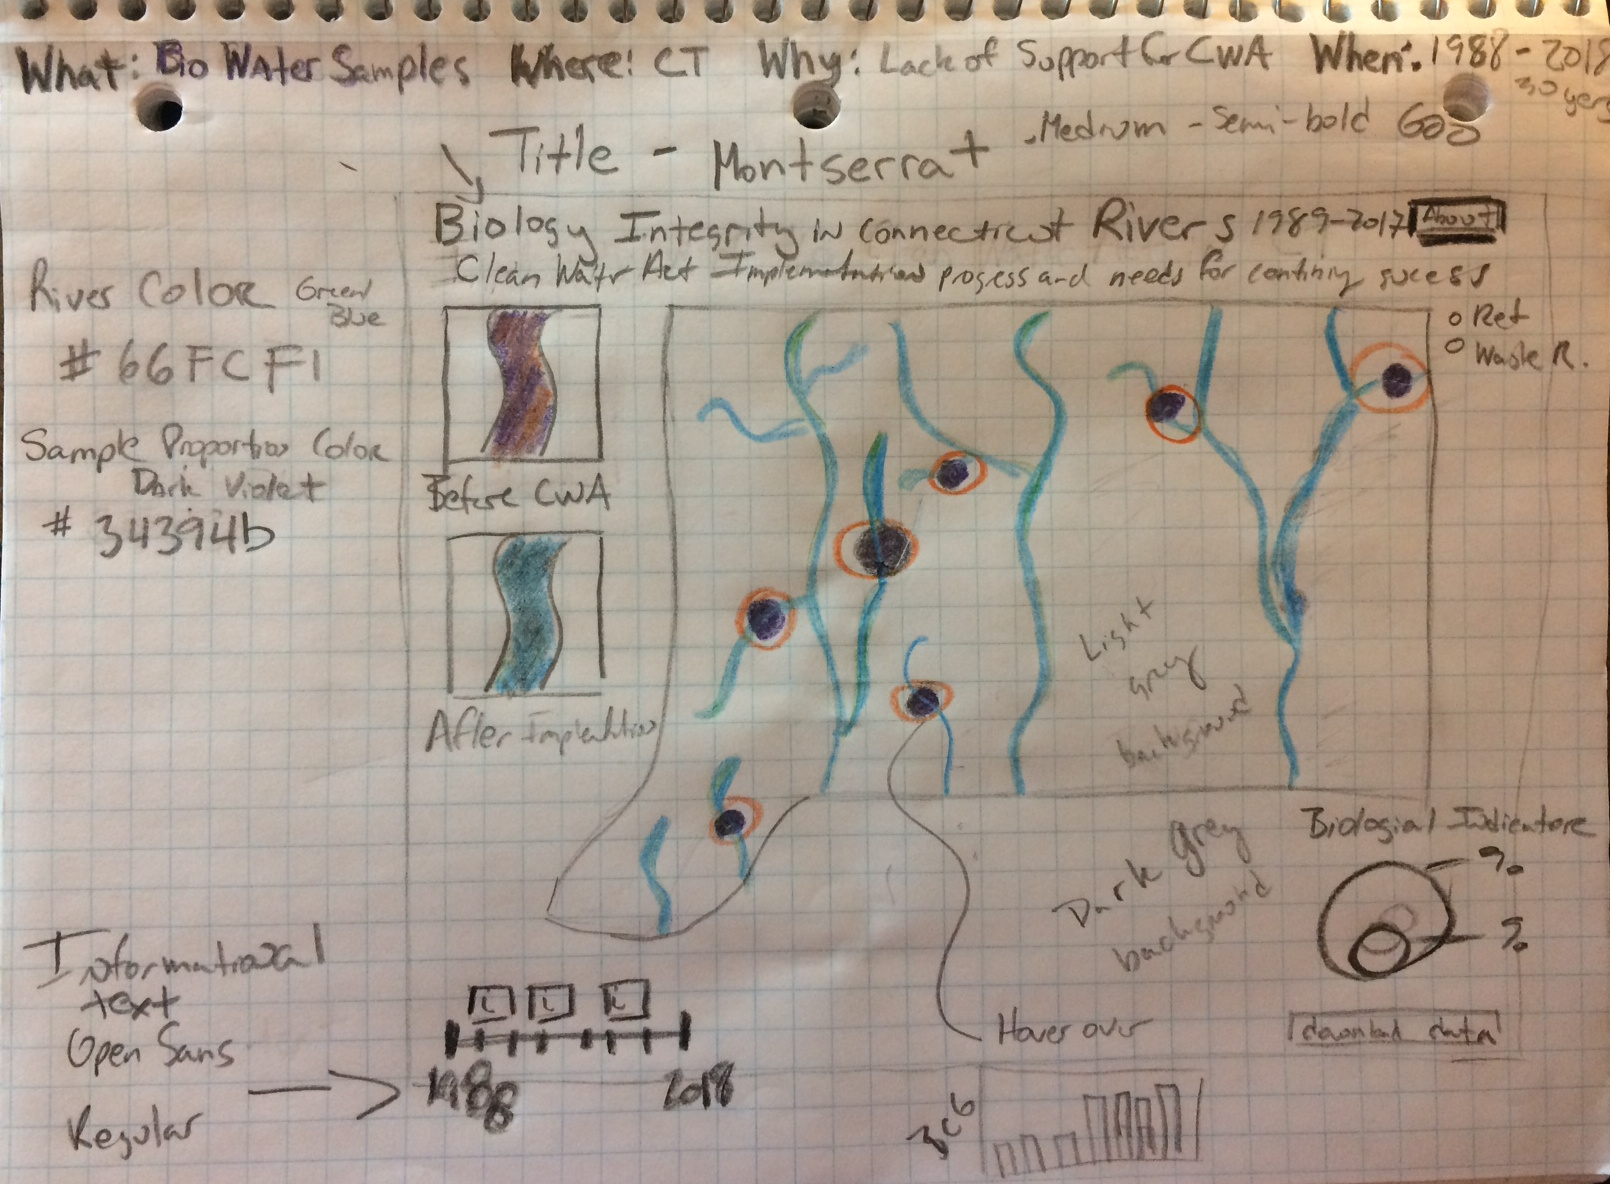 What: Bio Water Samples Where: CT Why: Lack of Support for CWA When: 1988-2018
30 yers
Title - Montserrat .Medium - Semi-bold 600
Biology Integrity in Connecticut Rivers 1989-2017 About
Clean Watr Act Implementation progess and needs for continy sucess
River Color Green Blue
#66FCF1
Sample Proportion Color
Dark Violet
#34394b
Before CWA
After
Ref
Waste R.
Light
grey
background
Dark grey
background
Biological Indicators
%
%
download data
Hover over
Informational
text
Open Sans
Regular
L L L
1988 2018